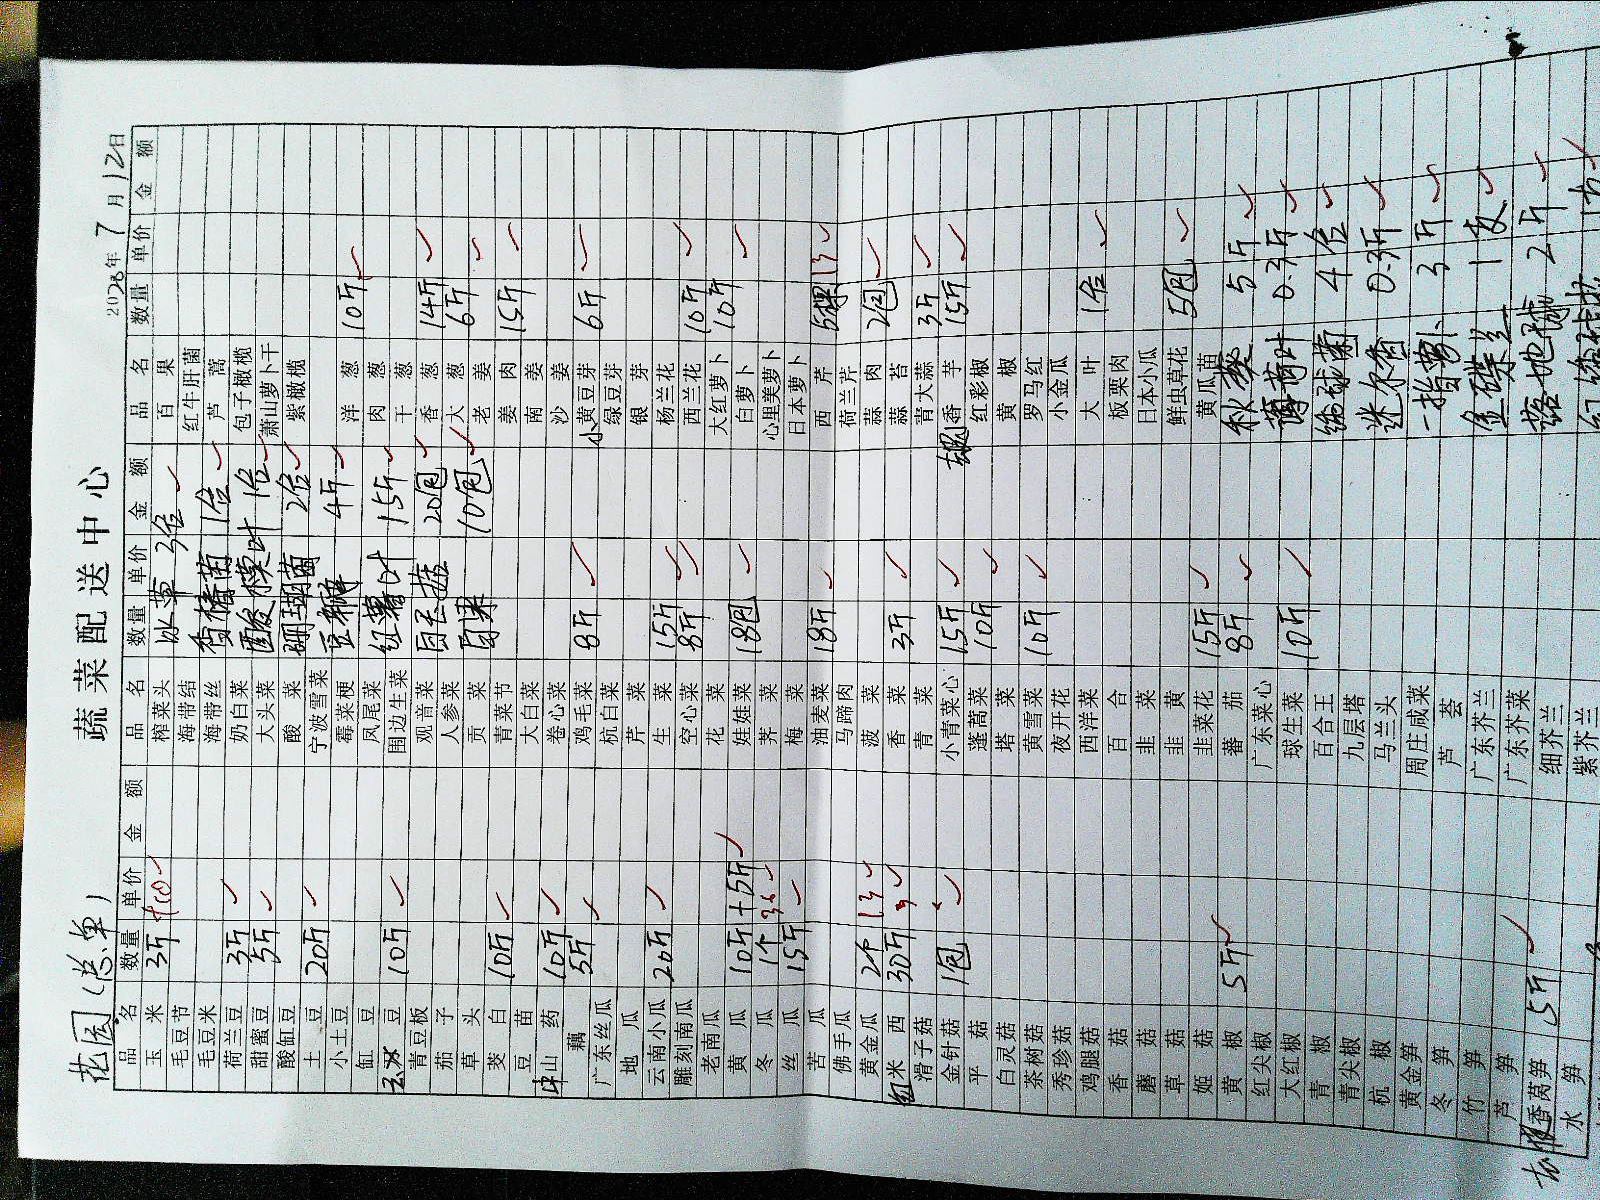 花园(总单)
蔬菜配送中心
2023年7月12日
品名 数量 单价 金额
玉米 3斤
毛豆节
毛豆米
荷兰豆 3斤
甜蜜豆 5斤
酸缸豆
土豆 20斤
小土豆
缸豆
豆 10斤
青豆板
茄子
草头
茭白 10斤
豆苗
山药 10斤
藕 5斤
广东丝瓜
地瓜
云南小瓜 20斤
雕刻南瓜
老南瓜
黄瓜 10斤+5斤
冬瓜 1个 36
丝瓜 15斤
苦瓜
佛手瓜
黄金瓜 2个 13
红米西 30斤 3
滑子菇
金针菇 1包
平菇
白灵菇
茶树菇
秀珍菇
鸡腿菇
香菇
蘑菇
草菇
姬菇
黄椒 5斤
红尖椒
大红椒
青椒
青尖椒
杭椒
黄金笋
冬笋
竹笋
芦笋
香莴笋 5斤
水笋
品名 数量 单价 金额
榨菜头 冰草 3合
海带结
海带丝 香椿苗 1合
奶白菜
大头菜 酸模叶 1合
酸菜 珊瑚菌 2合
宁波雪菜
霉菜梗 4斤
凤尾菜
围边生菜 红薯叶 15斤
观音菜 白玉菇 20包
人参菜
贡菜 白果 10包
青菜节
大白菜
卷心菜
鸡毛菜 8斤
杭白菜
芹菜
生菜 15斤
空心菜 8斤
花菜
娃娃菜 18包
荠菜
梅菜
油麦菜 18斤
马蹄肉
菠菜
香菜 3斤
青菜
小青菜心 15斤
蓬蒿菜 10斤
塔菜
黄雪菜 10斤
夜开花
西洋菜
百合
韭菜
韭黄
韭菜花 15斤
蕃茄 8斤
广东菜心
球生菜 10斤
百合王
九层塔
马兰头
周庄咸菜
芦荟
广东芥兰
广东芥菜
细芥兰
紫芥兰
品名 数量 单价 金额
百果
红牛肝菌
芦蒿
包子橄榄
萧山萝卜干
紫橄榄
洋葱 10斤
肉葱
干葱
香葱 14斤
大葱 6斤
老姜
姜肉 15斤
南姜
沙姜
小黄豆芽 6斤
绿豆芽
银芽
杨兰花
西兰花 10斤
大红萝卜 10斤
白萝卜
心里美萝卜
日本萝卜
西芹 5颗 13
荷兰芹
蒜肉 2包
蒜苔
青大蒜 3斤
香芋 15斤
红彩椒
黄椒
罗马红
小金瓜
大叶 1合
板栗肉
日本小瓜
鲜虫草花 5包
黄瓜苗
秋葵 5斤
薄荷叶 0.3斤
绣球菌 4合
迷尔香 0.3斤
一指萝卜 3斤
金碟兰 1支
落地球 2斤